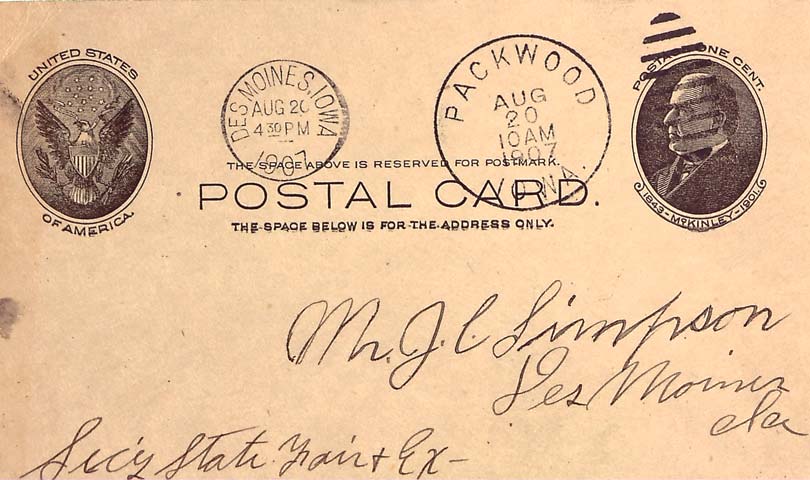 UNITED STATES
OF AMERICA.
DES MOINES, IOWA
AUG 20
4 30 PM
1907
PACKWOOD
AUG
20
10AM
1907
IOWA.
POSTAGE ONE CENT.
1843-McKINLEY-1901
THE SPACE ABOVE IS RESERVED FOR POSTMARK.
POSTAL CARD.
THE SPACE BELOW IS FOR THE ADDRESS ONLY.
Mr. J. C. Simpson
Des Moines
Ia
Sec'y State Fair & Ex-